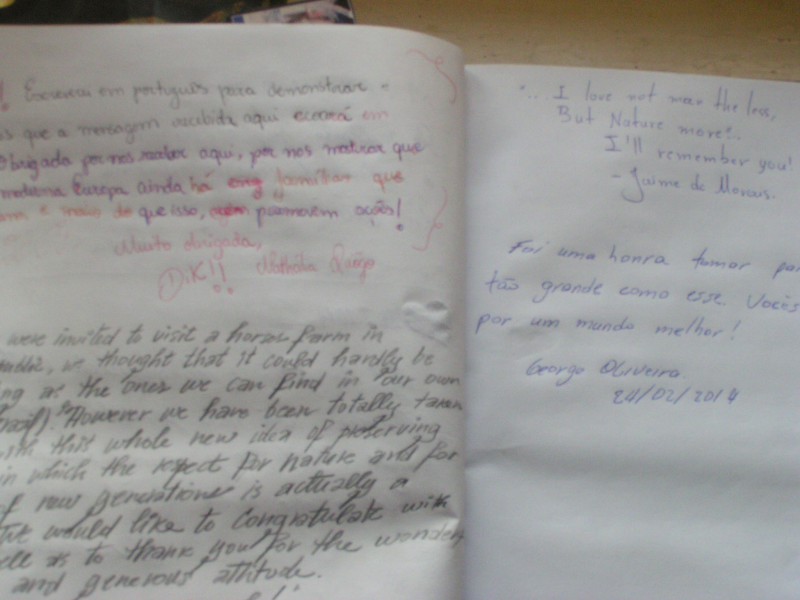 ! Escrevai em português para demonstrar
os que a mensagem recebida aqui ecoará em
Obrigada por nos receber aqui, por nos mostrar que
moderna Europa ainda há famílias que
am, e mais do que isso, promovem ações!
Muito obrigada,
Děk!!
were invited to visit a horse farm in
public, we thought that it could hardly be
ng as the ones we can find in our own
razil). However we have been totally taken
with this whole new idea of preserving
in which the respect for nature and for
f new generations is actually a
We would like to congratulate with
ell as to thank you for the wonder
and generous attitude.
"...I love not man the less,
But Nature more".
I'll remember you!
- Jaime de Morais.
Foi uma honra tomar par
tão grande como esse. Vocês
por um mundo melhor!
George Oliveira
24/02/2014